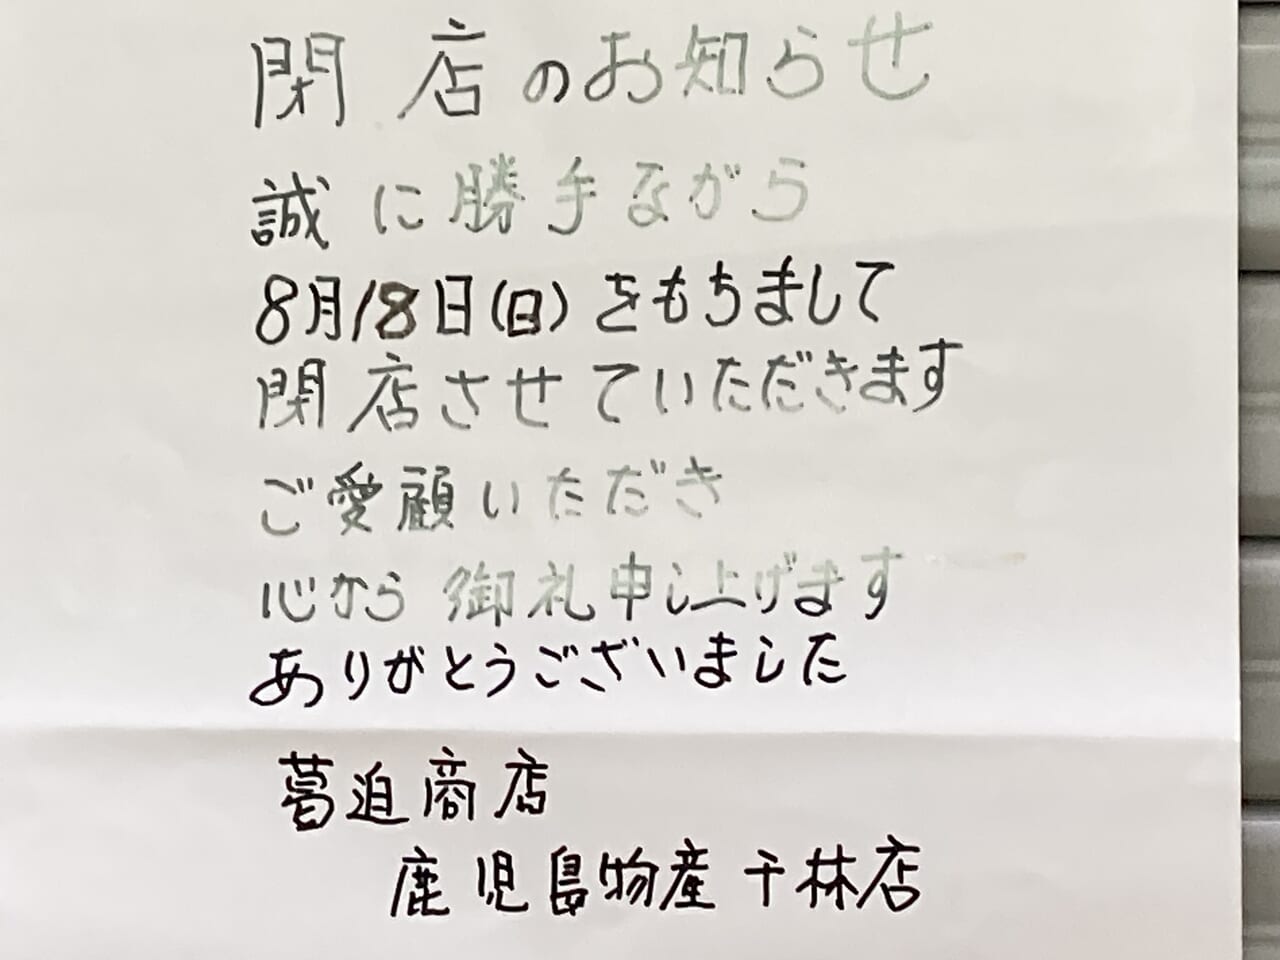 閉店のお知らせ
誠に勝手ながら
8月18日(日)をもちまして
閉店させていただきます
ご愛顧いただき
心から御礼申し上げます
ありがとうございました
葛迫商店
鹿児島物産千林店